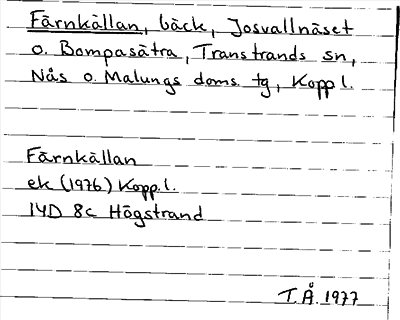 Färnkällan, bäck, Josvallnäset
o. Bompasätra, Transtrands sn,
Nås o. Malungs doms. tg, Kopp l.
Färnkällan
ek (1976) Kopp. l.
14D 8c Högstrand
T.Å. 1977